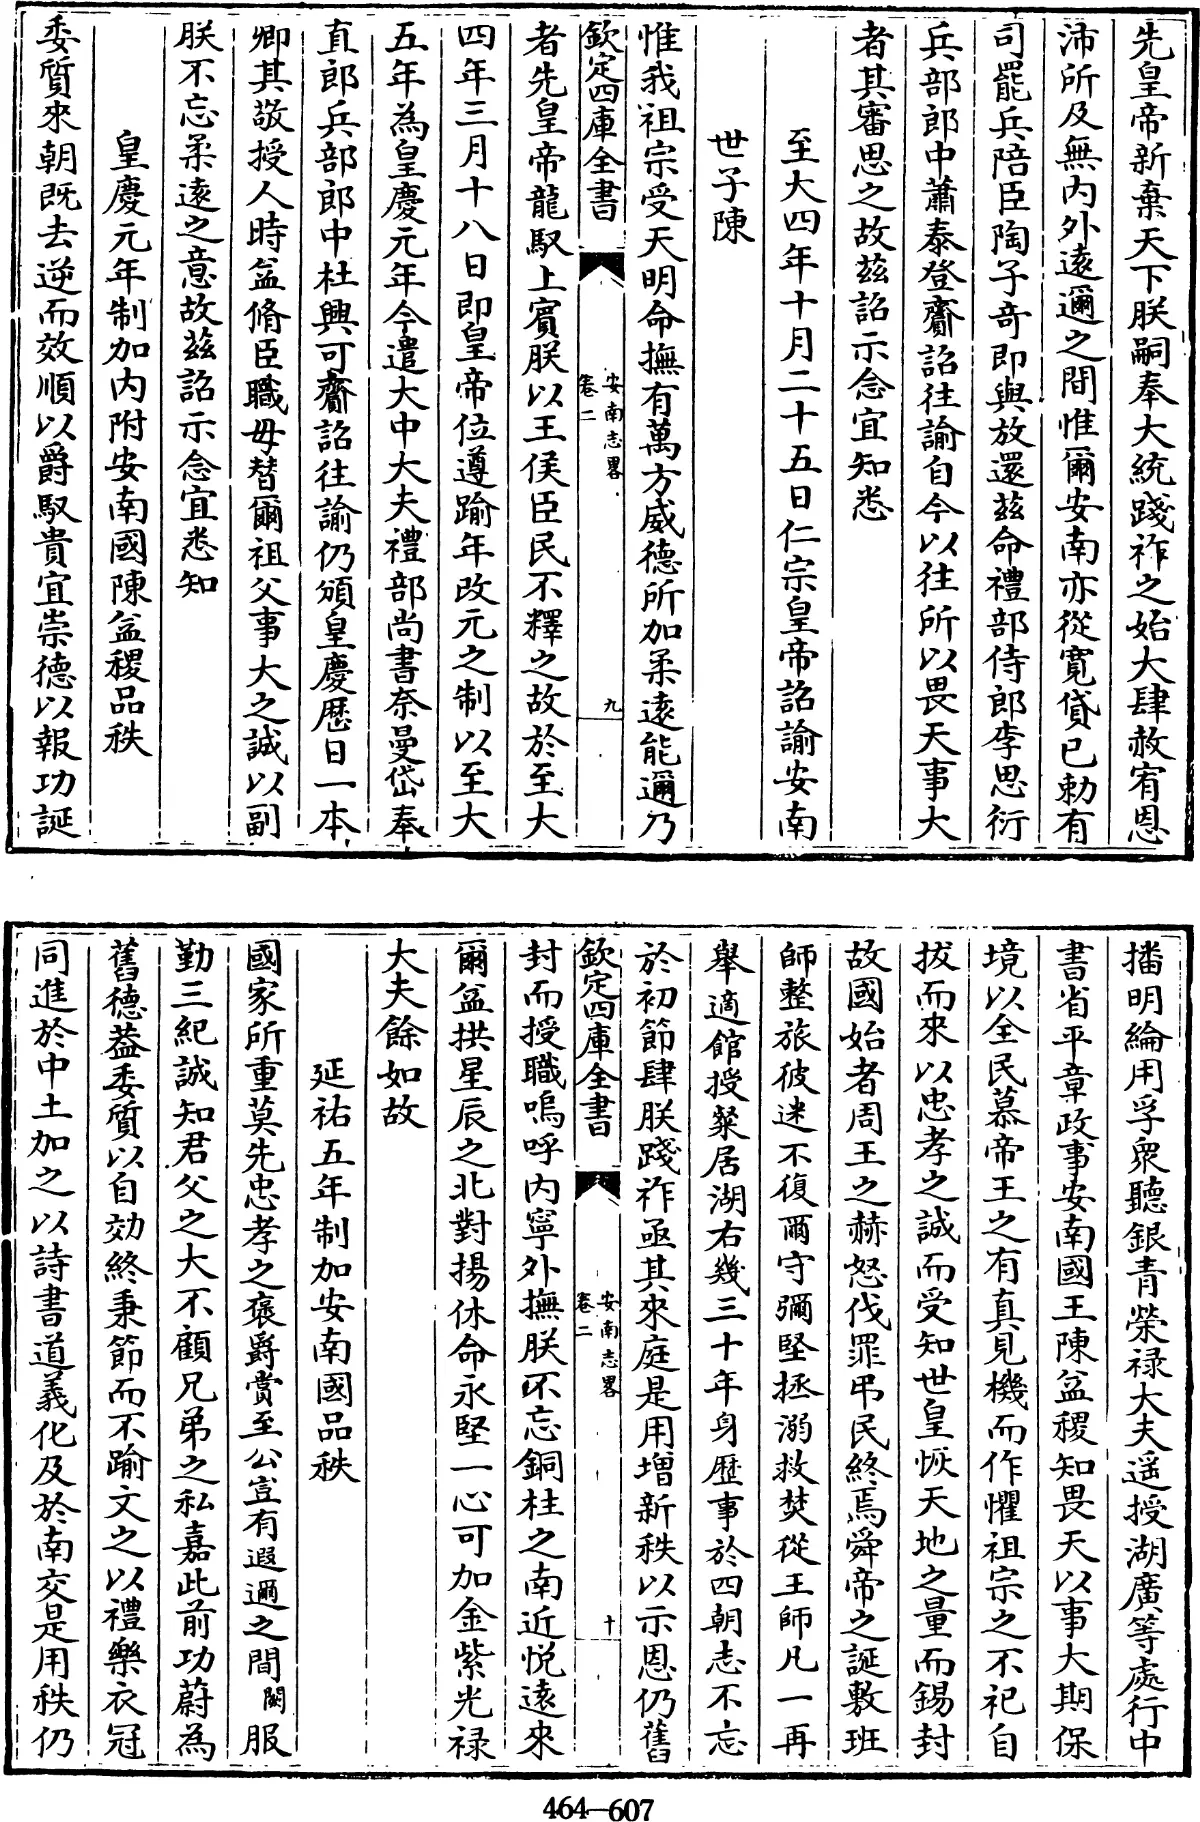 先皇帝新棄天下朕嗣奉大統踐祚之始大肆赦宥恩
沛所及無内外逺邇之間惟爾安南亦從寛貸已勅有
司罷兵陪臣陶子竒即與放還兹命禮部侍郎李思衍
兵部郎中蕭泰登齎詔往諭自今以往所以畏天事大
者其審思之故兹詔示念宜知悉
至大四年十月二十五日仁宗皇帝詔諭安南
世子陳
惟我祖宗受天明命撫有萬方威德所加柔逺能邇乃
欽定四庫全書
安南志畧
卷二
九
者先皇帝龍馭上賓朕以王侯臣民不釋之故於至大
四年三月十八日即皇帝位遵踰年改元之制以至大
五年為皇慶元年今遣大中大夫禮部尚書奈曼岱奉
直郎兵部郎中杜興可齎詔往諭仍頒皇慶厯日一本
卿其敬授人時益脩臣職毋替爾祖父事大之誠以副
朕不忘柔逺之意故兹詔示念宜悉知
皇慶元年制加内附安南國陳益稷品秩
委質來朝既去逆而效順以爵馭貴宜崇德以報功誕
播明綸用孚衆聽銀青榮禄大夫遥授湖廣等處行中
書省平章政事安南國王陳益稷知畏天以事大期保
境以全民慕帝王之有真見機而作懼祖宗之不祀自
拔而來以忠孝之誠而受知世皇恢天地之量而錫封
故國始者周王之赫怒伐罪弔民終焉舜帝之誕敷班
師整旅彼迷不復爾守彌堅拯溺救焚從王師凡一再
舉適館授粲居湖右幾三十年身歴事於四朝志不忘
於初節肆朕踐祚亟其來庭是用增新秩以示恩仍舊
欽定四庫全書
安南志畧
卷二
十
封而授職嗚呼内寧外撫朕不忘銅柱之南近悦逺來
爾益拱星辰之北對揚休命永堅一心可加金紫光禄
大夫餘如故
延祐五年制加安南國品秩
國家所重莫先忠孝之褒爵賞至公豈有遐邇之間闕服
勤三紀誠知君父之大不顧兄弟之私嘉此前功蔚為
舊德葢委質以自効終秉節而不踰文之以禮樂衣冠
同進於中土加之以詩書道義化及於南交是用秩仍
464-607